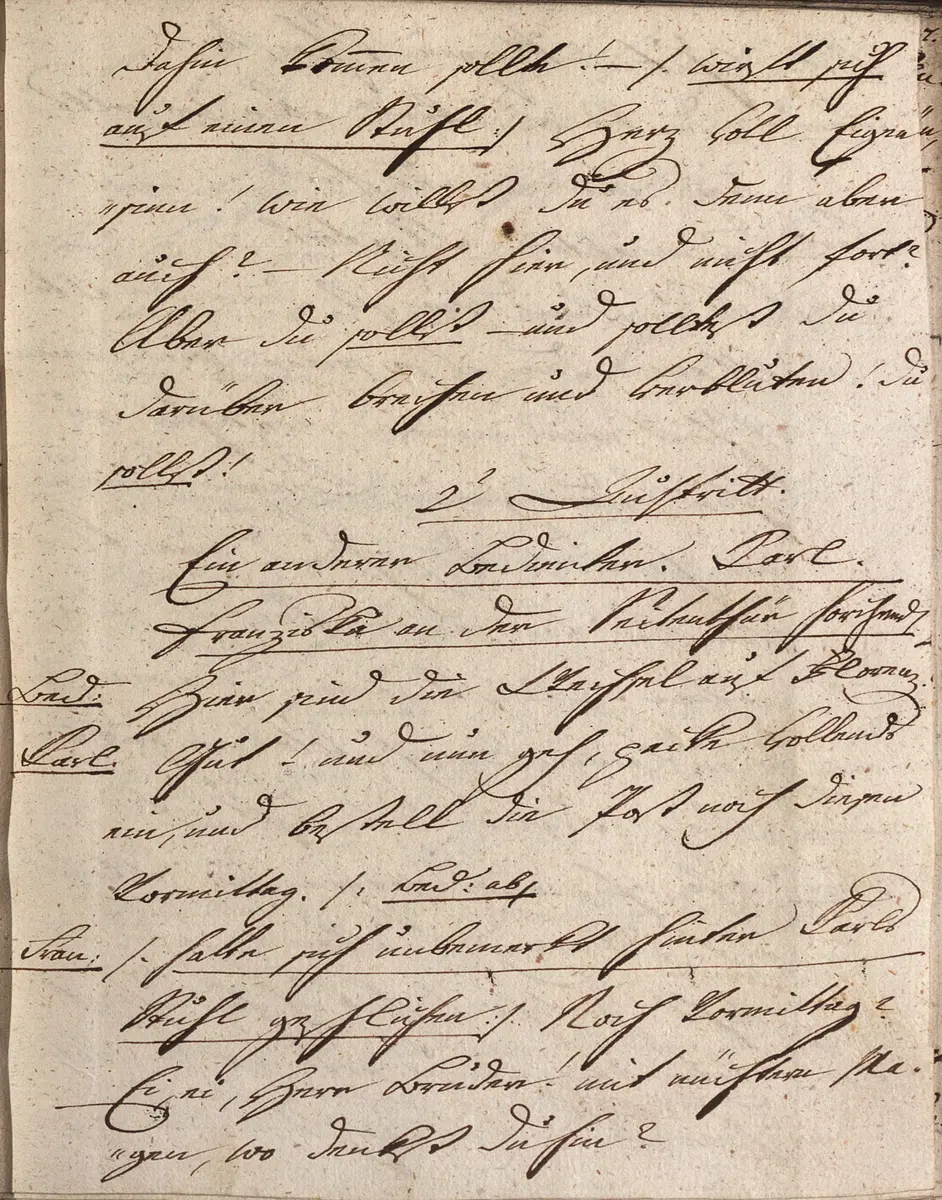 dahin kommen sollte! — /: wirft sich
auf einen Stuhl :/ Herz voll Eigen
„sinn! wie willst du es denn aber
auch? — Nicht hier, und nicht fort?
Aber du sollst — und solltest du
darüber brechen und verbluten! du
sollst!
2' Auftritt.
Ein anderer Bedienter. Carl.
Franziska an der Seitenthür horchend/
Bed: Hier sind die Wechsel auf Florenz.
Carl. Gut! und nun geh, packe vollends
ein, und bestell die Post noch diesen
Vormittag. /: Bed: ab/
Fran: /: hatte sich unbemerkt hinter Carls
Stuhl geschlichen :/ Noch Vormittag?
Ei, ei, Herr Bruder! mit nüchtern Ma-
„gen, wo denkst du hin?